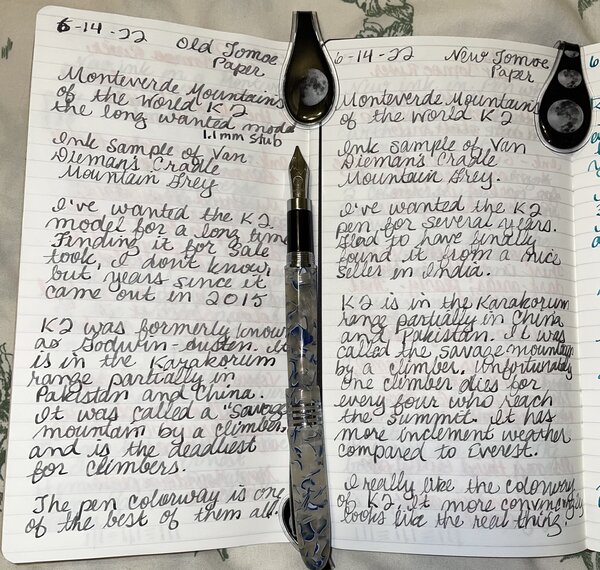 6-14-22 Old Tomoe
Paper
Monteverde Mountains
of the World K2
the long wanted model
1.1mm stub
Ink Sample of Van
Dieman's Cradle
Mountain Grey
I've wanted the K2
model for a long time
Finding it for sale
took, I don't know,
but years since it
came out in 2015
K2 was formerly known
as Godwin-Austen. It
is in the Karakorum
range partially in
Pakistan and China.
It was called a "Savage
mountain by a climber,
and is the deadliest
for climbers.
The pen colorway is one
of the best of them all.
6-14-22 New Tomoe
Paper
Monteverde Mountains
of the World K2
Ink Sample of Van
Dieman's Cradle
Mountain Grey.
I've wanted the K2
pen for several years.
Glad to have finally
found it from a nice
seller in India.
K2 is in the Karakorum
range partially in China
and Pakistan. It was
called the savage mountain
by a climber. Unfortunately
one climber dies for
every four who reach
the summit. It has
more inclement weather
compared to Everest.
I really like the colorway
of K2. It more convincingly
looks like the real thing.